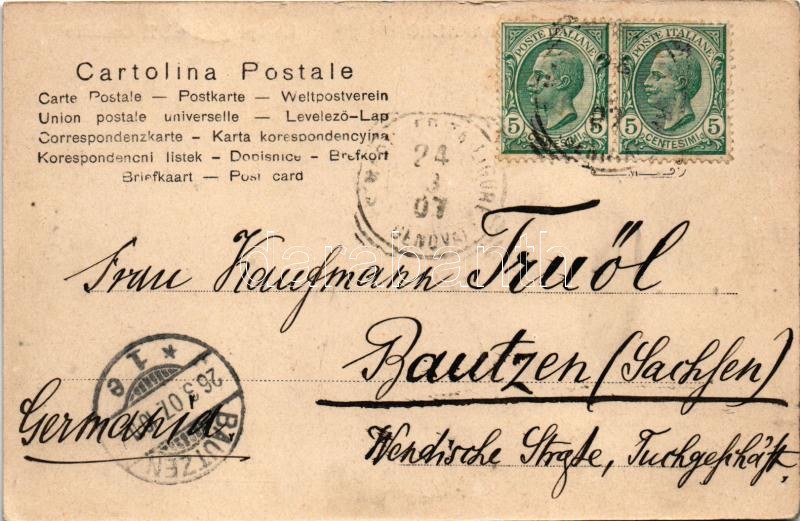 POSTE ITALIANE POSTE ITALIANE
5 5 5 5
CENTESIMI CENTESIMI
Cartolina Postale
Carte Postale — Postkarte — Weltpostverein
Union postale universelle — Levelezö-Lap
Correspondenzkarte - Karta korespondencyjna
Korespondencni listek - Dopisnice - Brefkort
Briefkaart — Post card
LIGURE
24
3
07
GENOVA
Frau Kaufmann Truöl
Bautzen (Sachsen)
Wendische Straße, Tuchgeschäft.
Germania
BAUTZEN
26.3.07
* 1 e
darabanth